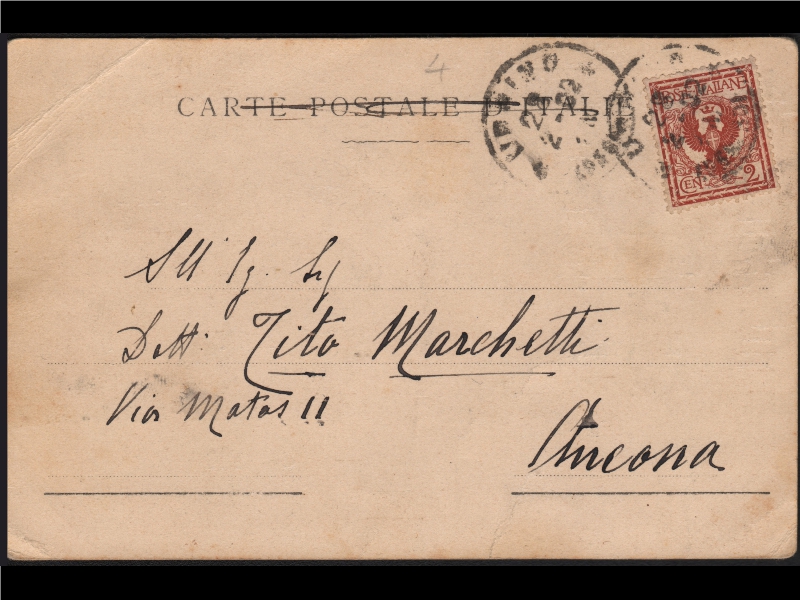 4
CARTE POSTALE D'ITALIE
URBINO
POSTE ITALIANE
CENT. 2
Ill Sig. Sig
Dott. Tito Marchetti
Via Matas 11
Ancona